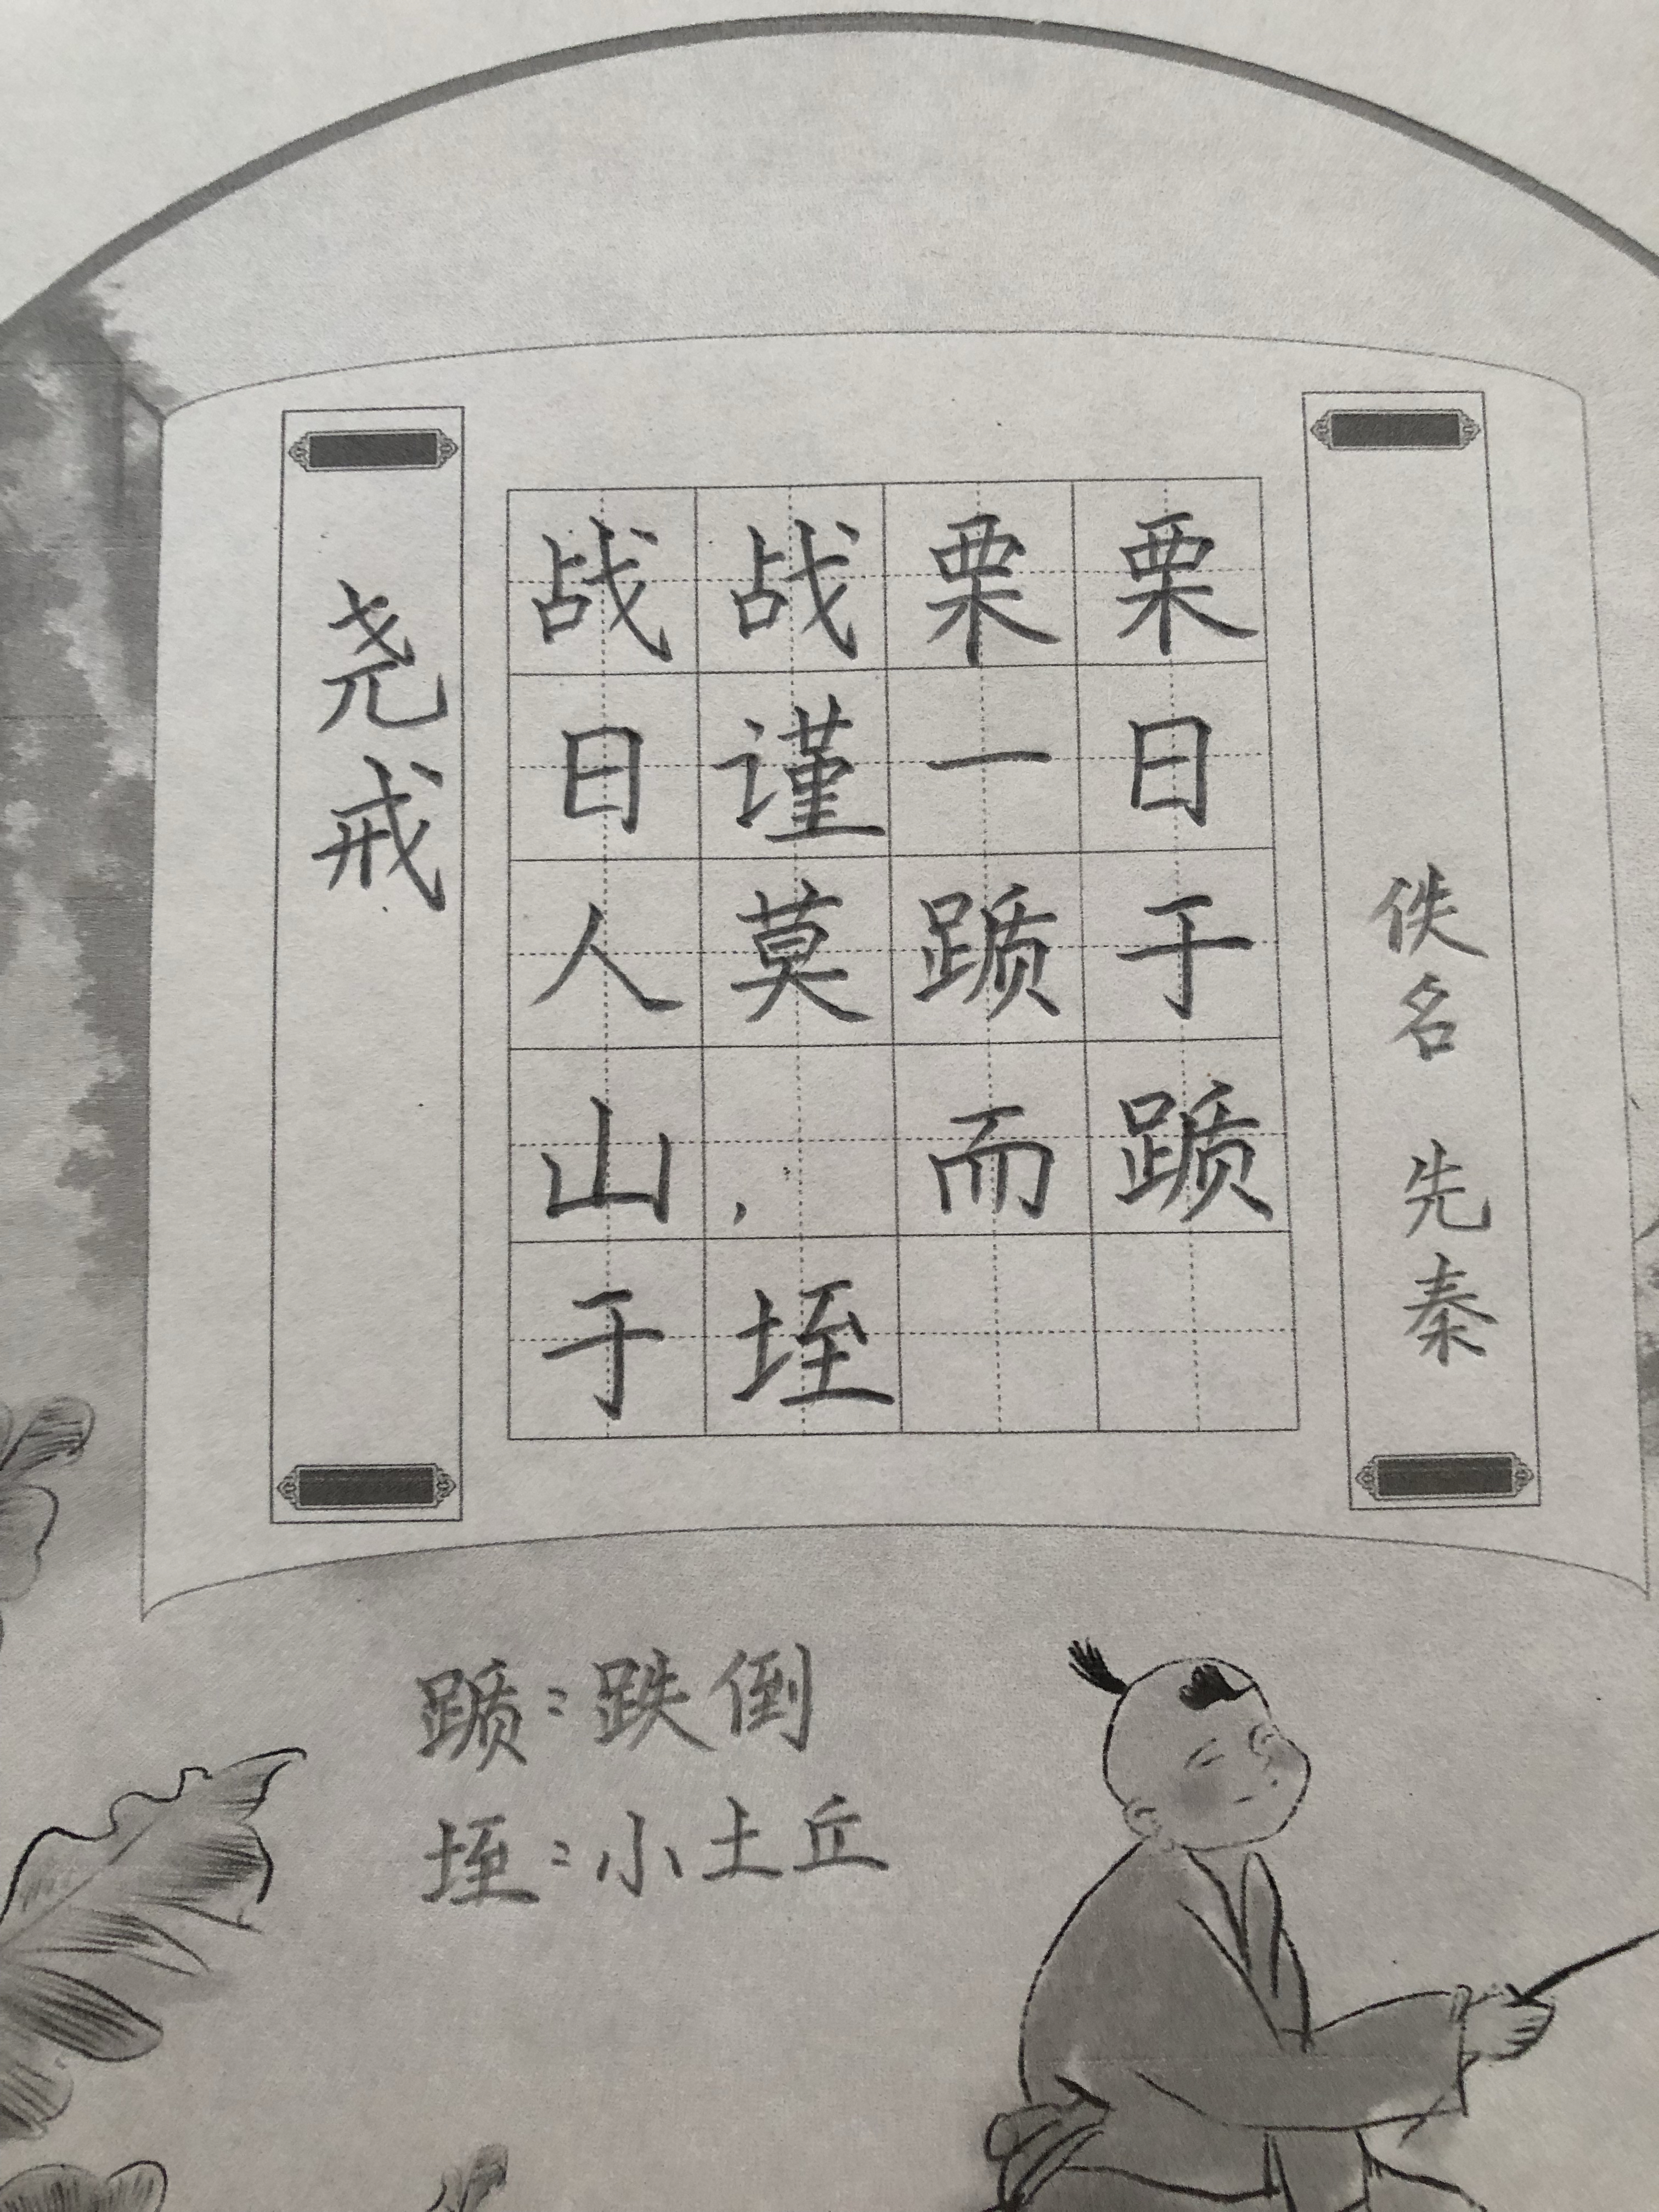 尧戒
战战栗栗
日谨一日
人莫踬于
山，而踬
于垤
佚名 先秦
踬：跌倒
垤：小土丘